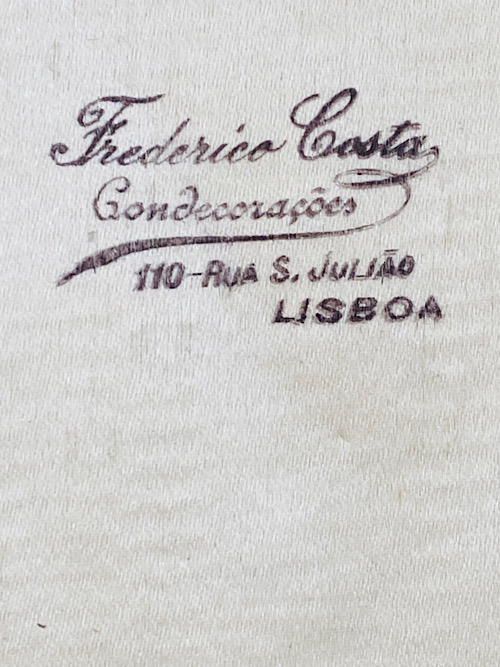 Frederico Costa
Condecorações
110-RUA S. JULIÃO
LISBOA